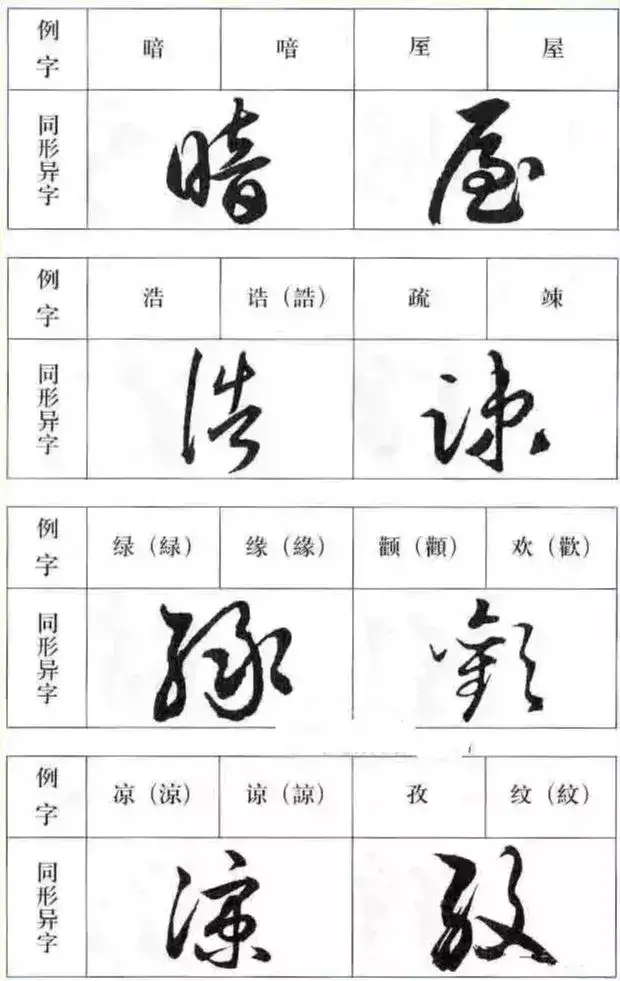 例字 暗 喑 厔 屋
同形异字
例字 浩 诰（誥） 疏 竦
同形异字
例字 绿（綠） 缘（緣） 颧（顴） 欢（歡）
同形异字
例字 凉（涼） 谅（諒） 孜 纹（紋）
同形异字